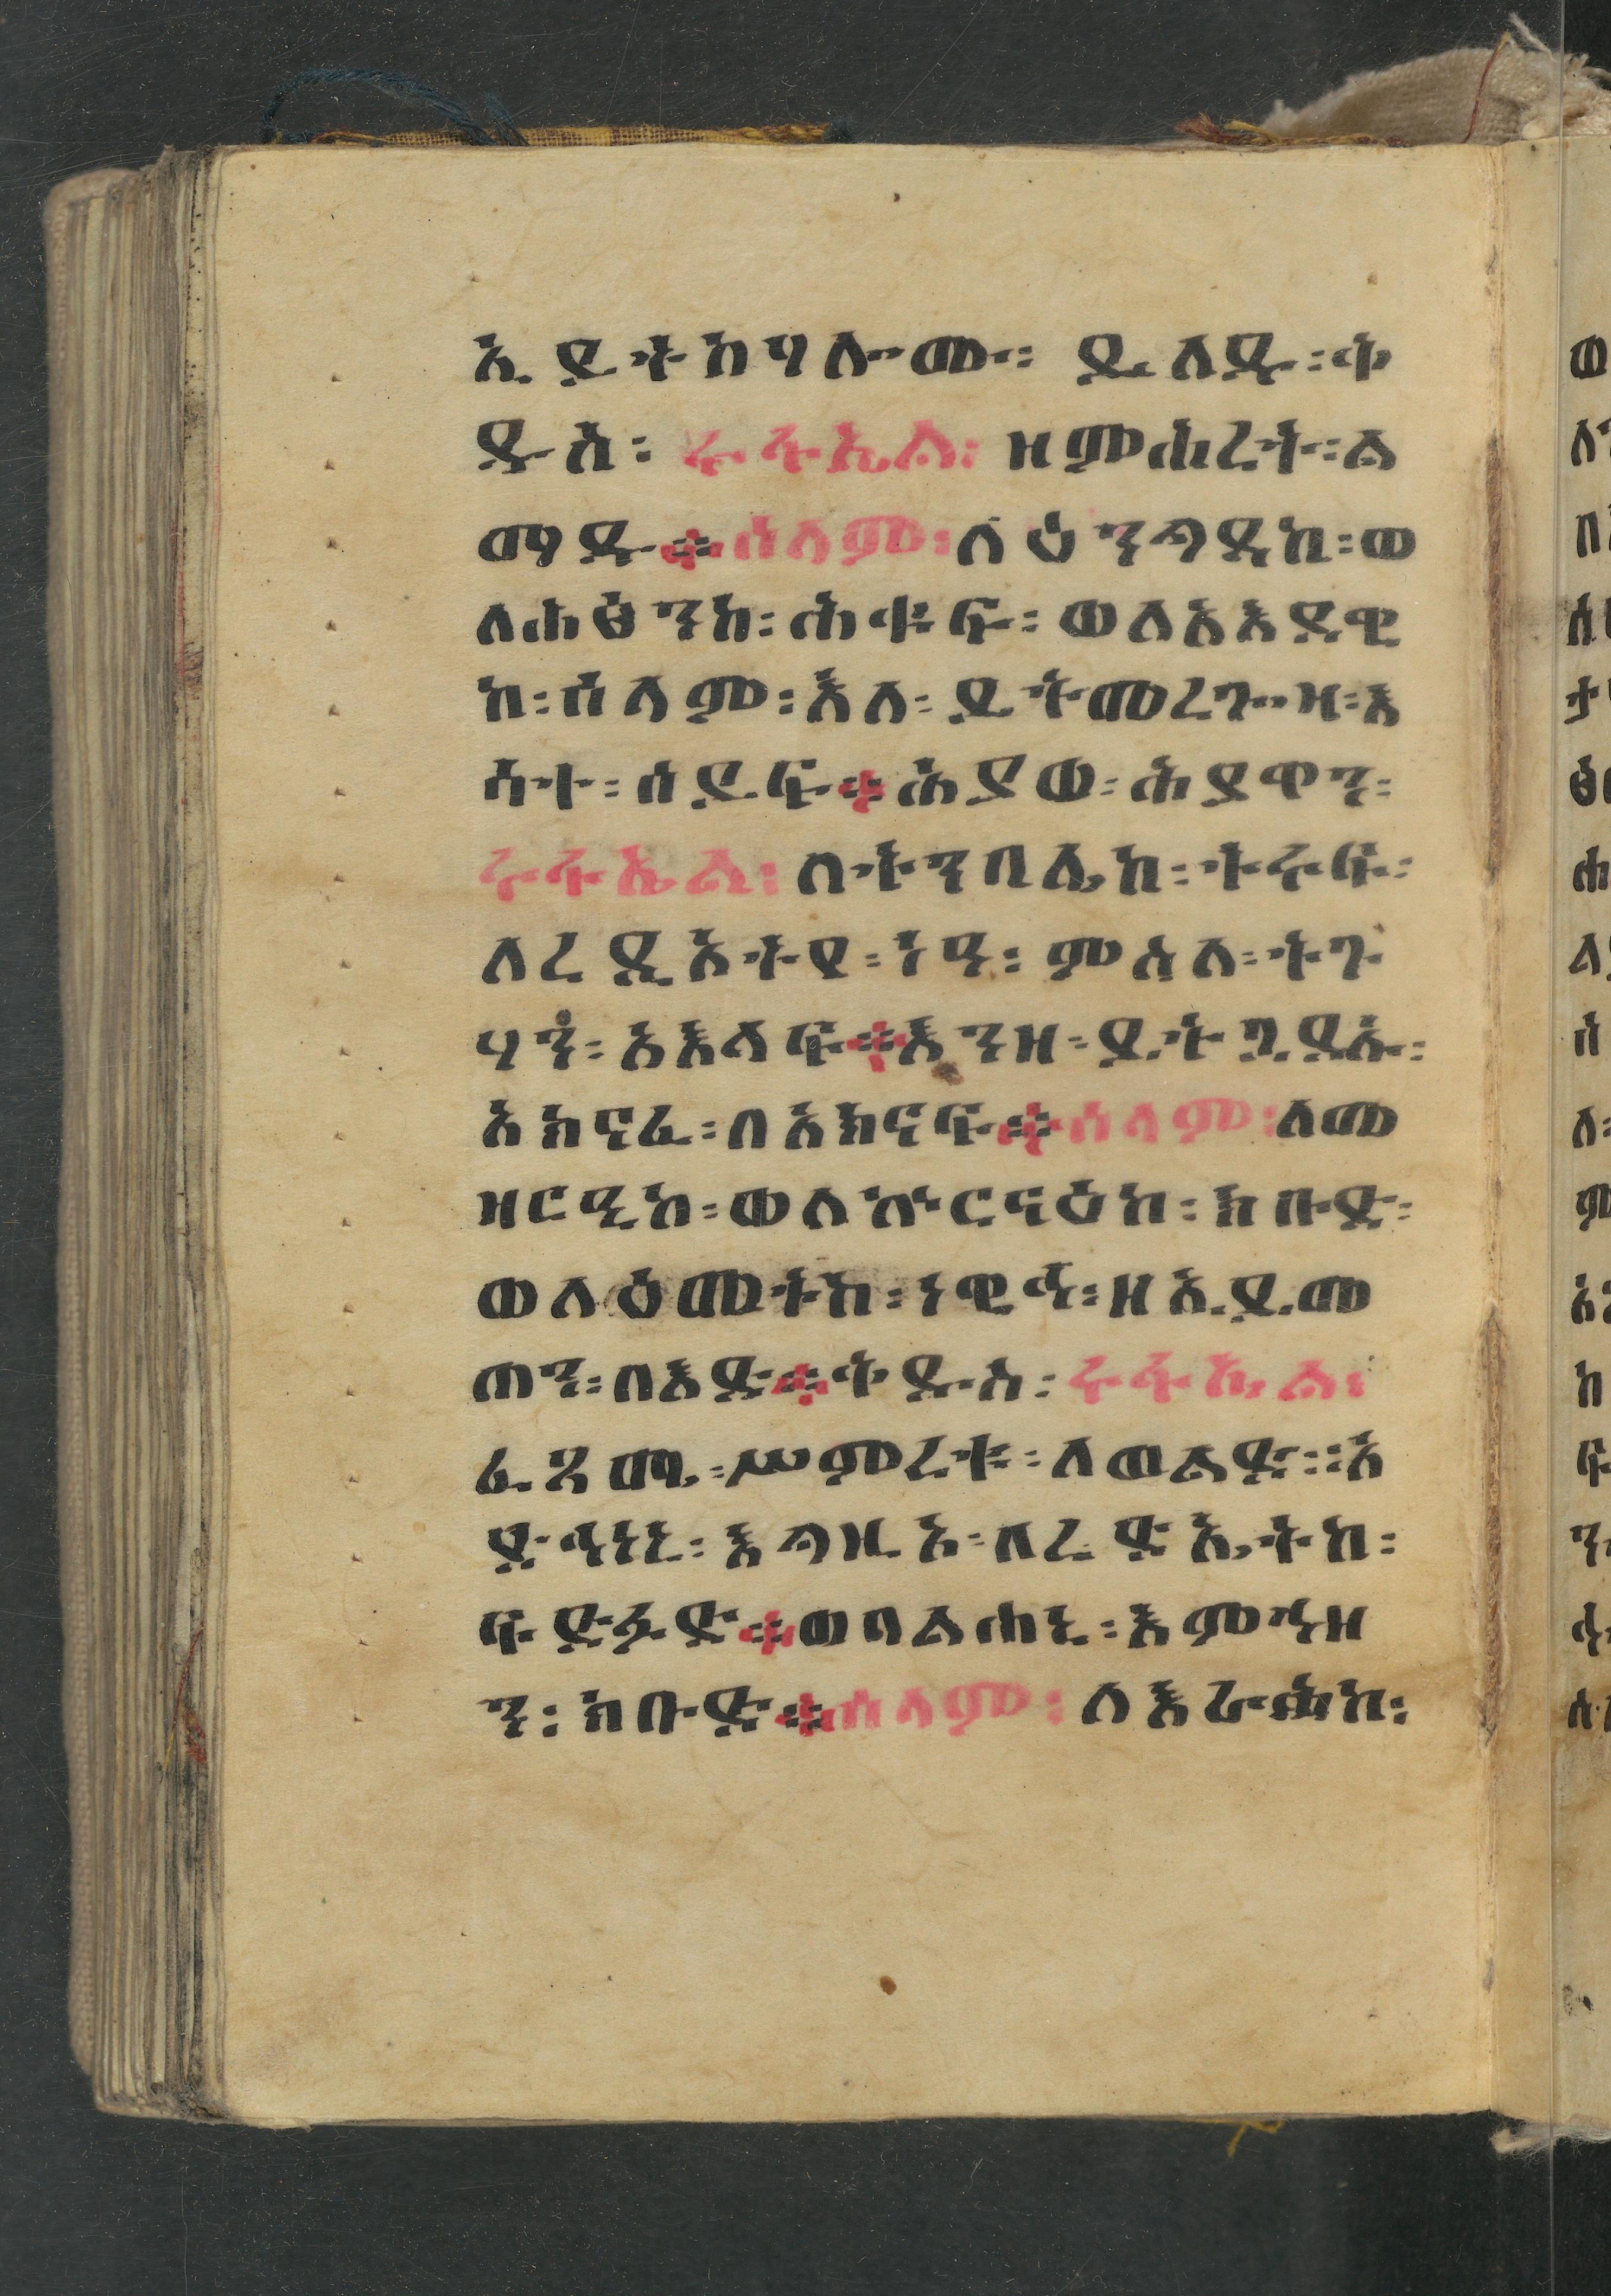 ኢይትክሃሎሙ። ይለዱ፡ቅ
ዱስ፡ ሩፋኤል፡ ዘምሕረት፡ል
ማዱ፨ሰላም፡ለዕንግድዓከ፡ወ
ለሕፅንከ፡ሕቁፍ፡ ወለአእዳዊ
ከ፡ሰላም፡እለ፡ ይትመረጐዛ፡እ
ሳተ፡ሰይፍ፨ሕያው፡ሕያዋን፡
ሩፋኤል፡በትንብሌከ፡ትሩፍ፡
ለረዲኦትየ፡ነዓ፡ ምስለ፡ትጉ
ሃን፡አእላፍ፨እንዘ፡ይትጋይፁ፡
አክናፈ፡በአክናፍ፨ሰላም፡ለመ
ዝርዒከ፡ወለኵርናዕከ፡ክቡድ፡
ወለዕመትከ፡ነዊኅ፡ዘኢይመ
ጠን፡በእድ፨ቅዱስ፡ሩፋኤል፡
ፈጻሚ፡ሥምረቱ፡ለወልድ፡፡አ
ድኅነኒ፡እግዚኦ፡ለረድኤትከ፡
ፍድፉድ፨ወባልሐኒ፡እምኀዘ
ን፡ክቡድ፨ሰላም፡ ለእራኅከ፡